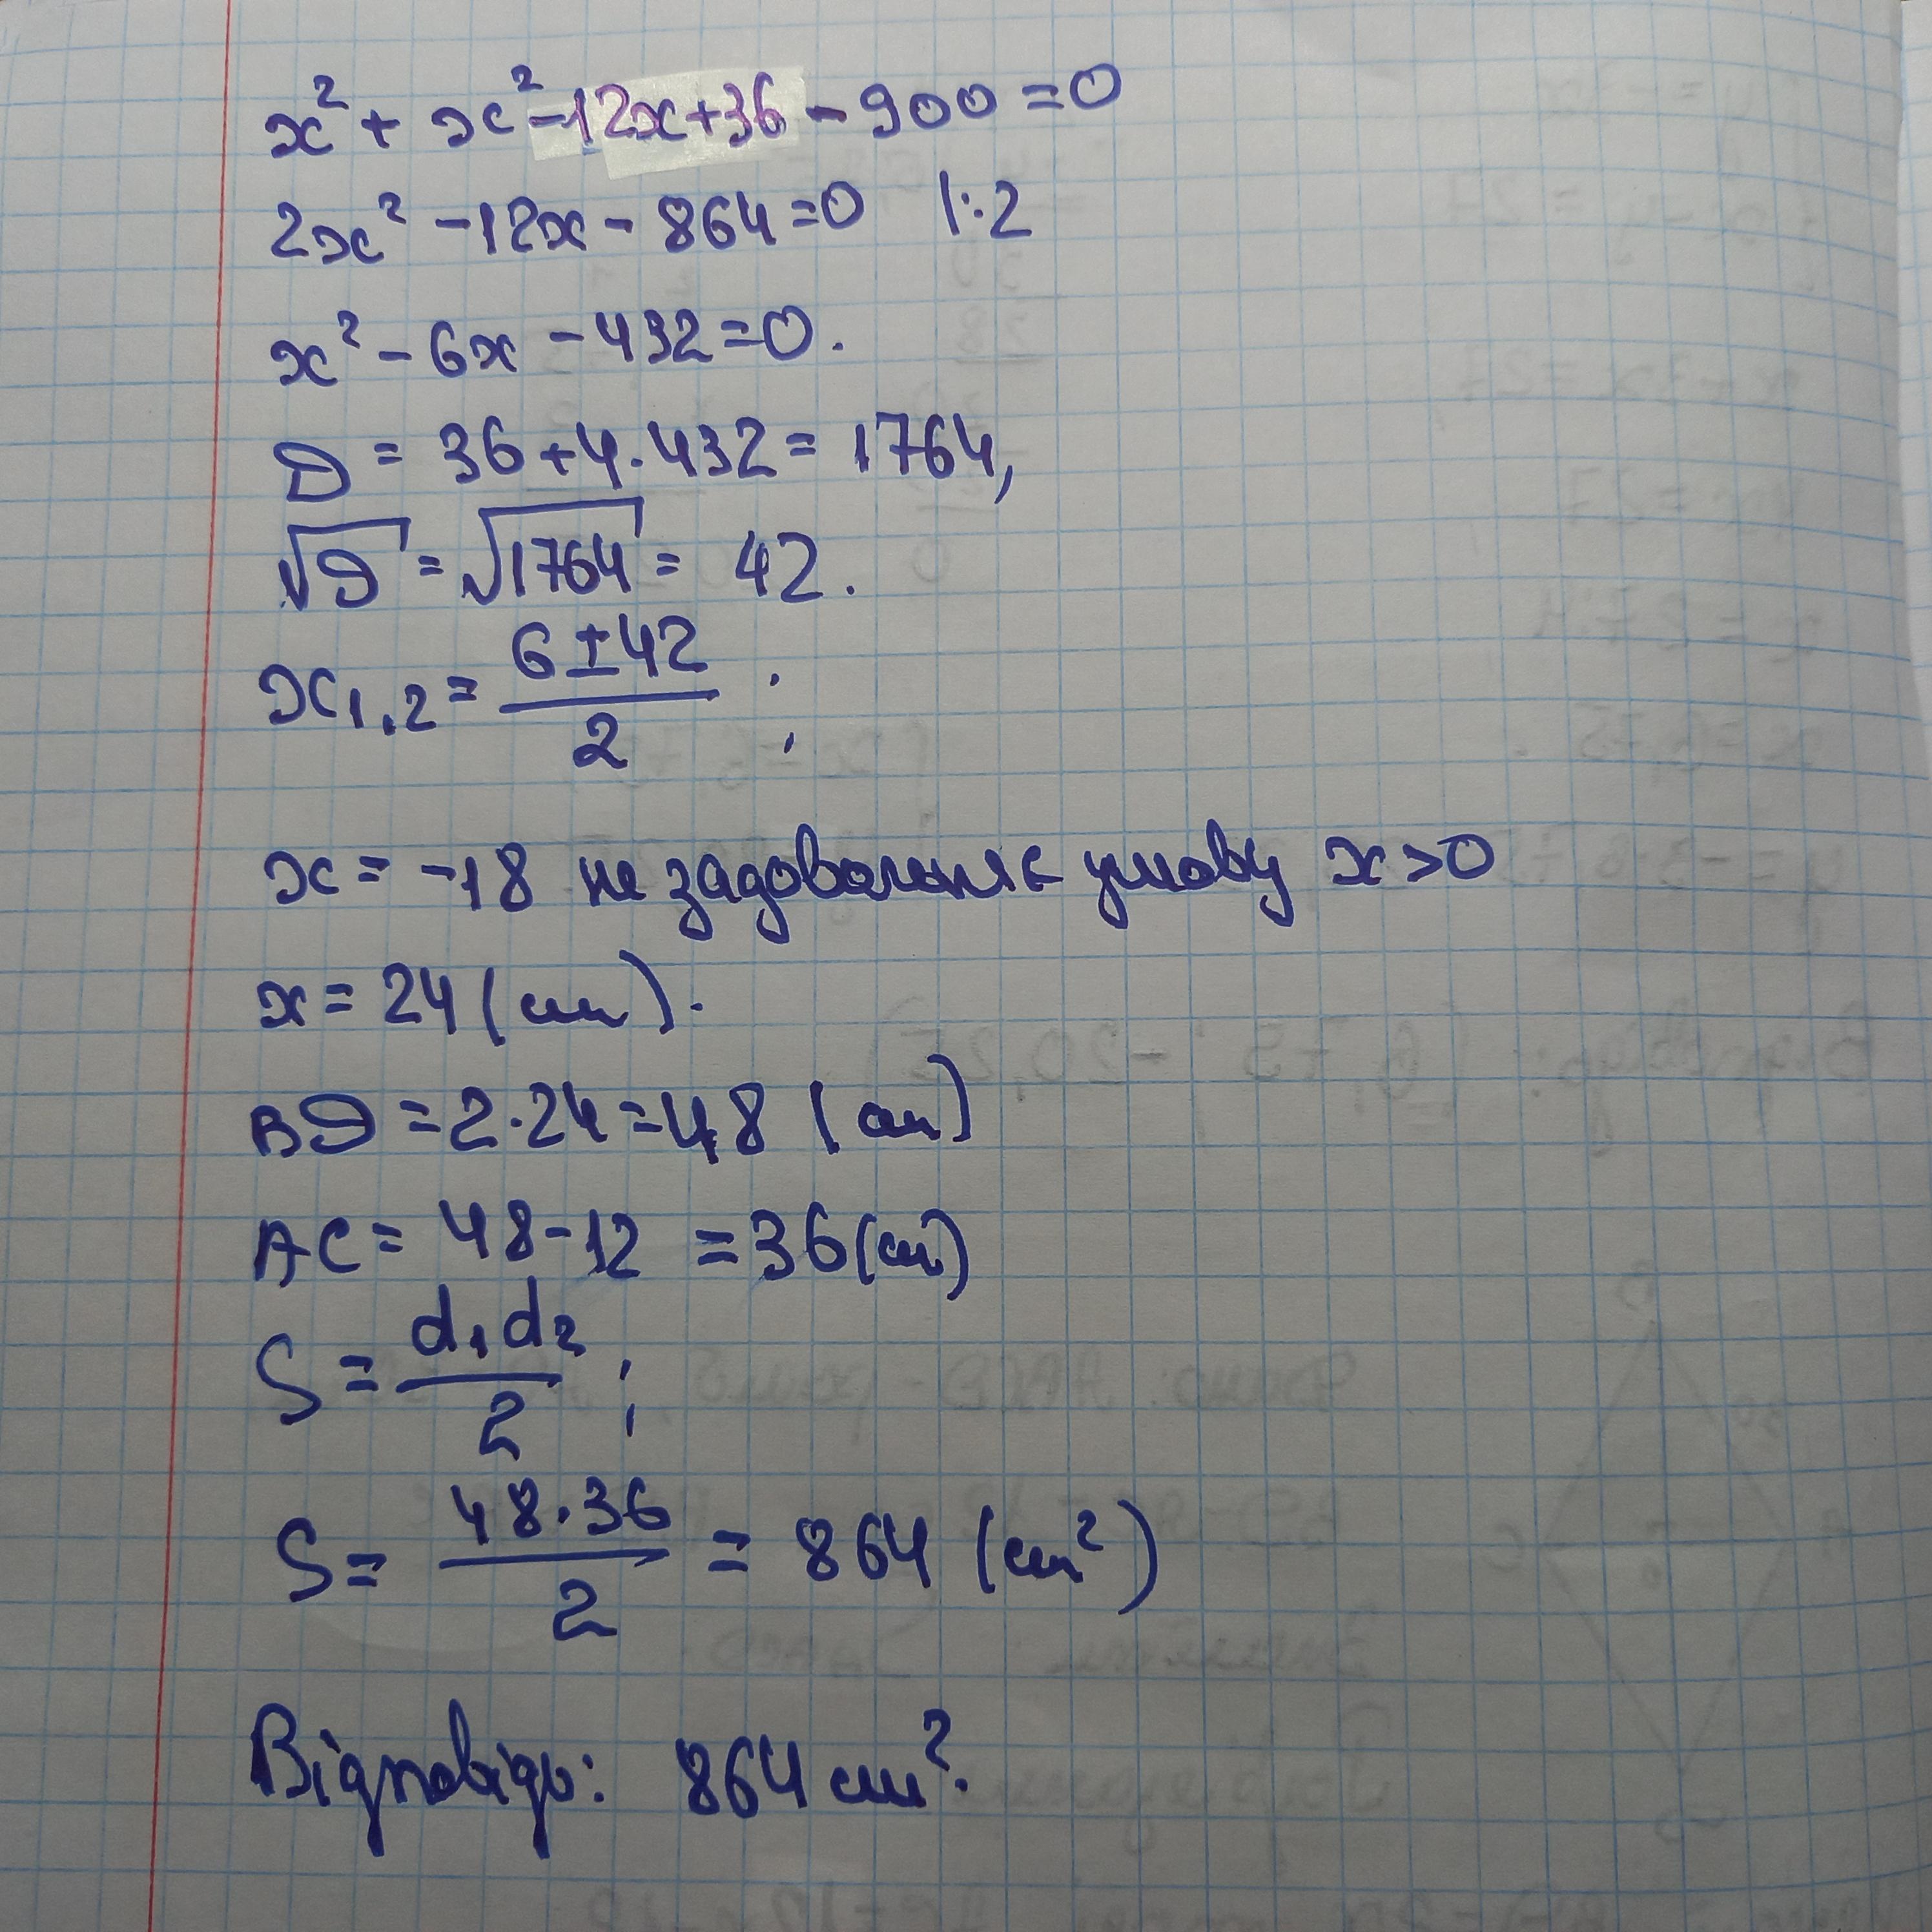 x² + x² - 12x + 36 - 900 = 0
2x² - 12x - 864 = 0 |:2
x² - 6x - 432 = 0.
D = 36 + 4·432 = 1764,
√D = √1764 = 42.
x₁,₂ = (6 ± 42)/2 ;
x = -18 не задовольняє умову x > 0
x = 24 (см).
BD = 2·24 = 48 (см)
AC = 48 - 12 = 36 (см)
S = d₁d₂/2 ;
S = 48·36/2 = 864 (см²)
Відповідь: 864 см².